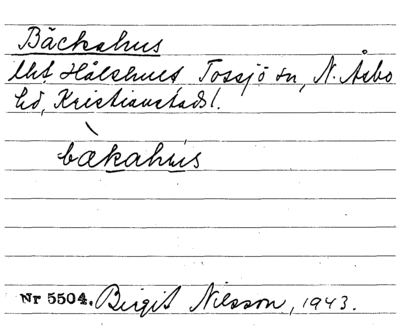 Bäckahus
lht Hålehult Tossjö sn, N. Åsbo
hd, Kristianstads l.
bækahùs
Nr 5504. Birgit Nilsson, 1943.